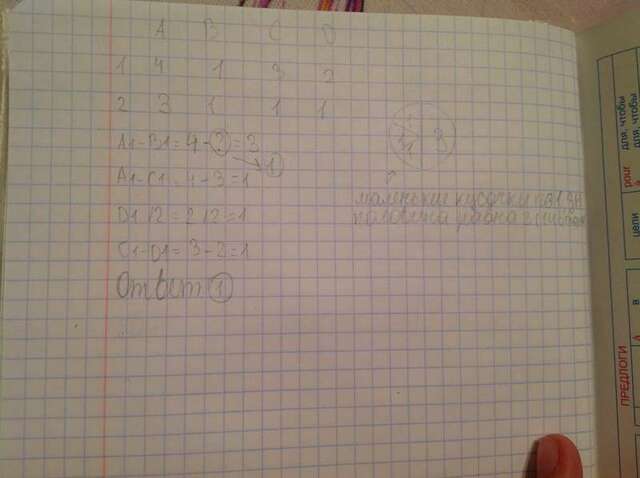 A B C D
1 4 1 3 2
2 3 1 1 1
A1-B1=4-2=3
1
A1-C1=4-3=1
D1/2=2/2=1
C1-D1=3-2=1
Ответ 1
3
маленькие кусочки
половина равна
ПРЕДЛОГИ
в
цели
для, чтобы
для, чтобы